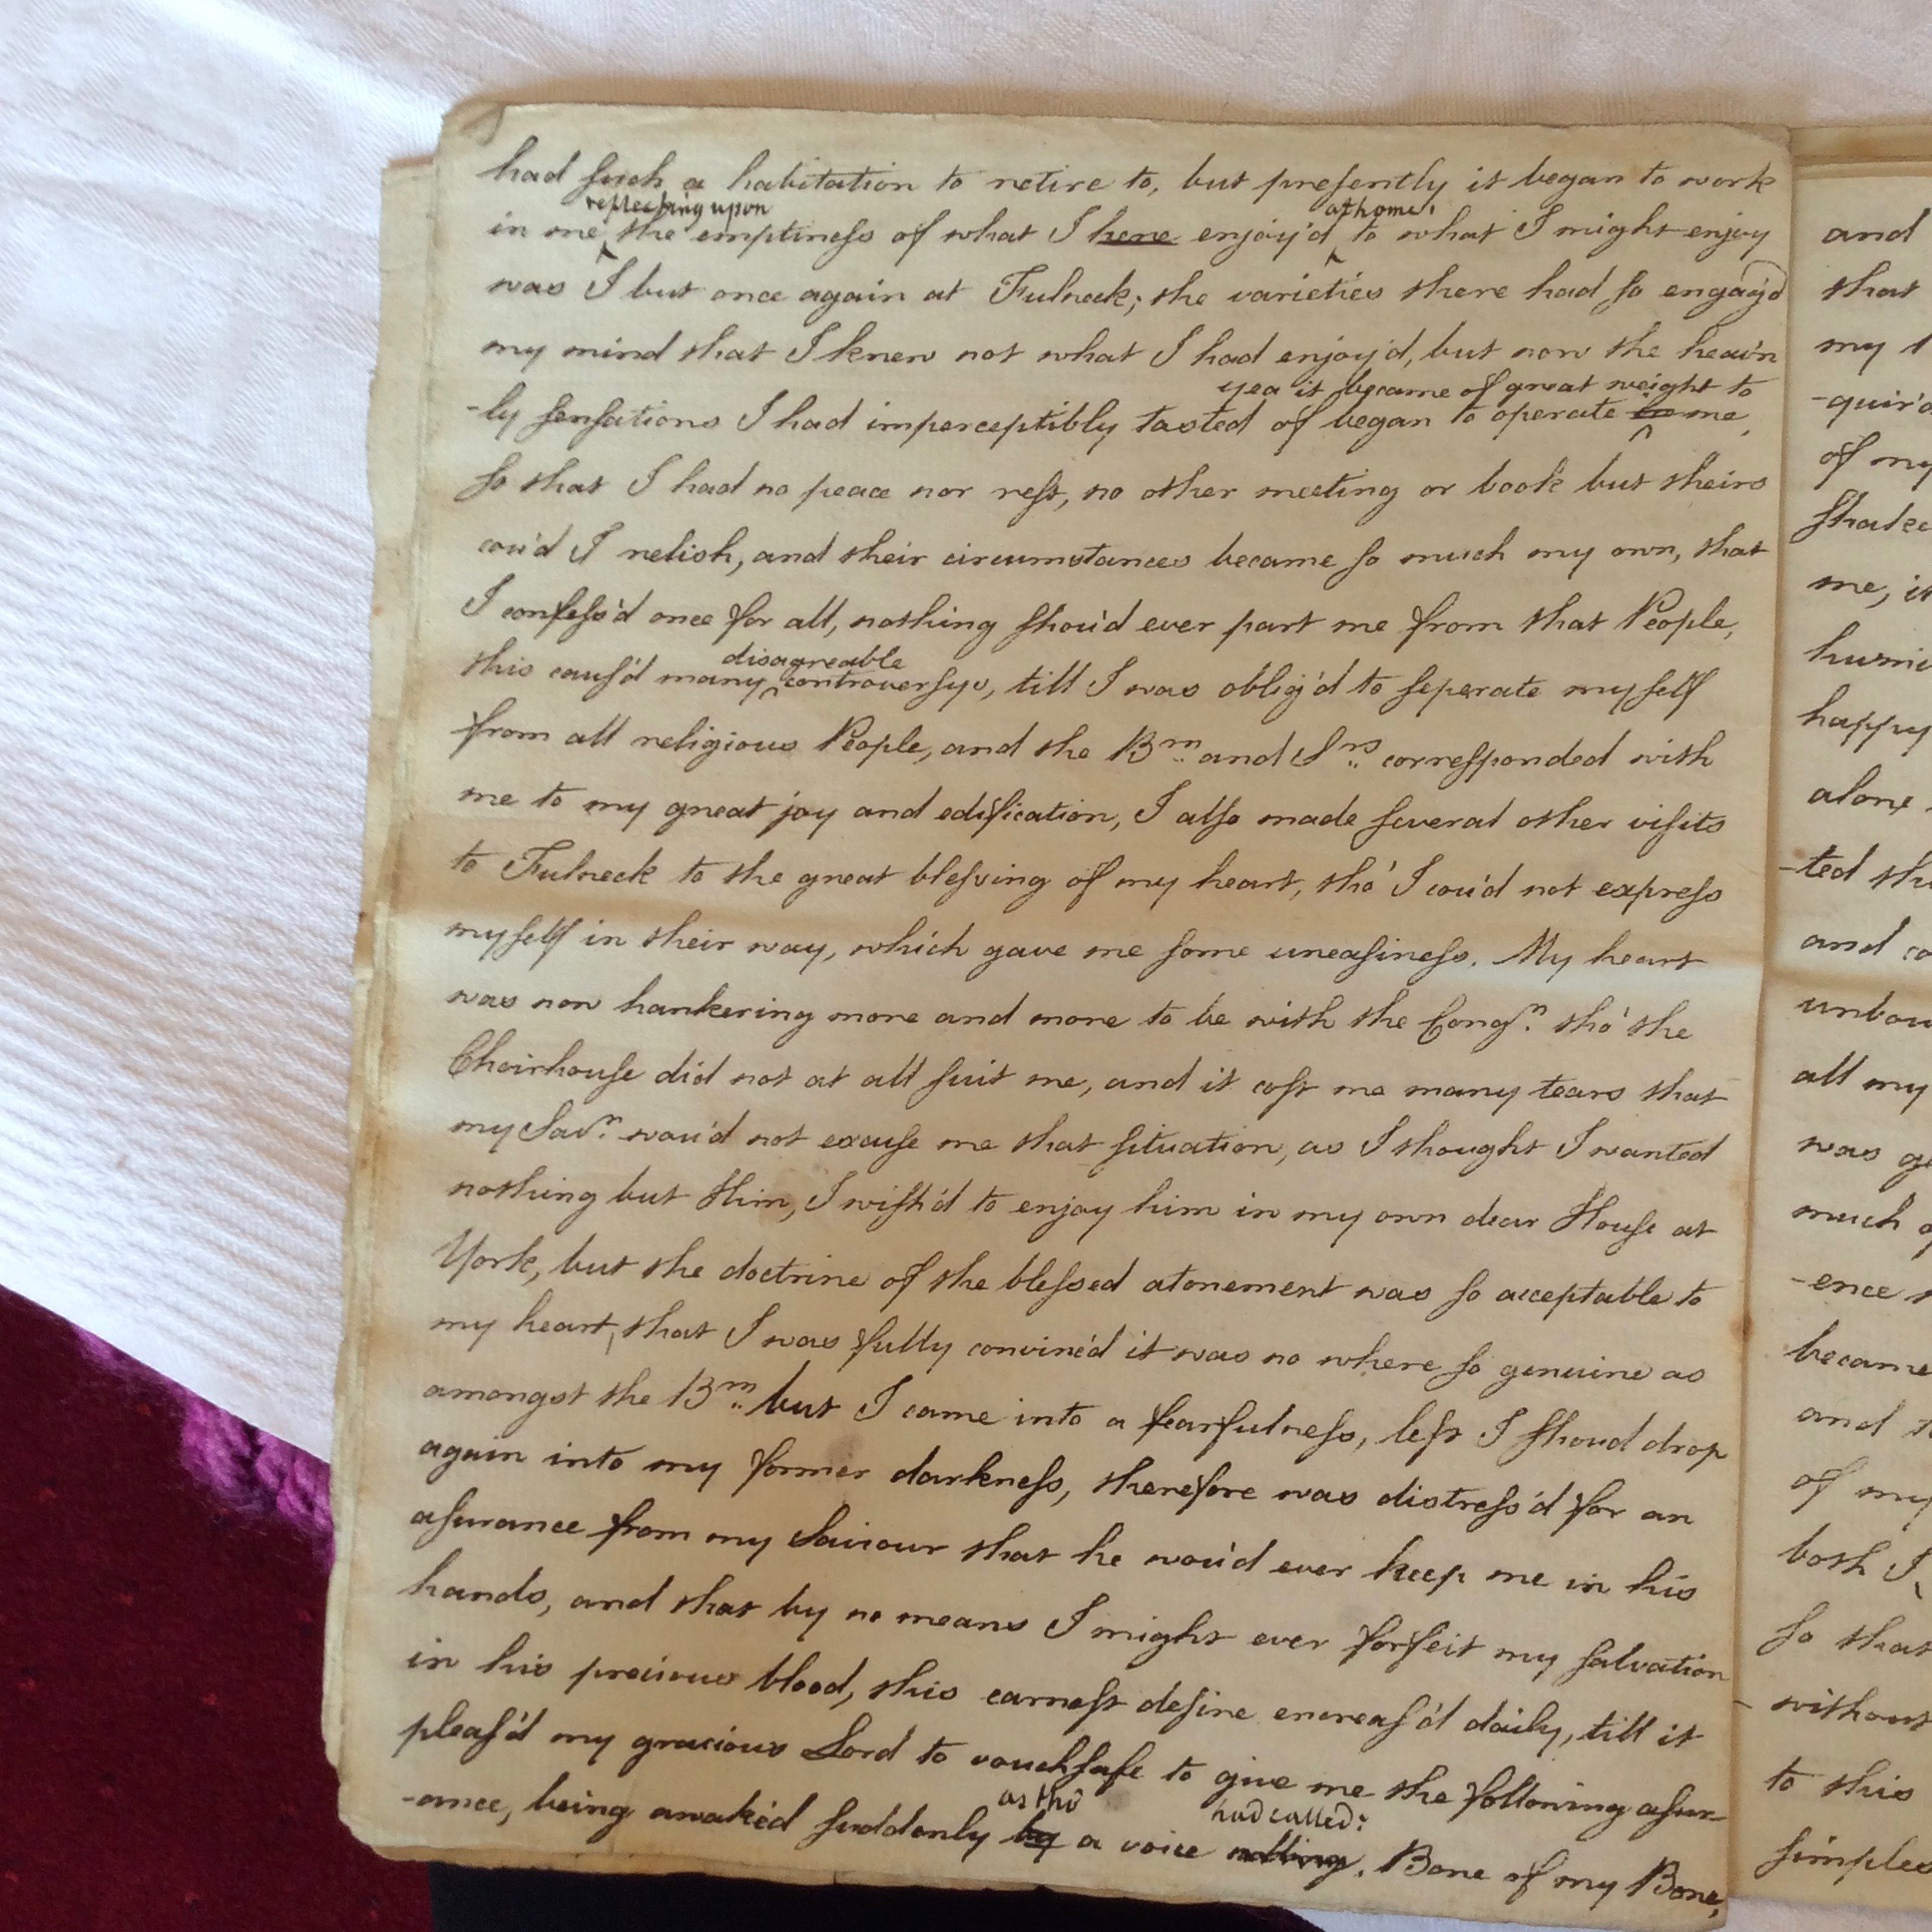 had such a habitation to retire to, but presently it began to work
reflecting upon
at home.
in me the emptiness of what I here enjoy'd to what I might enjoy
was I but once again at Fulneck; the varieties there had so engag'd
my mind that I knew not what I had enjoy'd, but now the heav'n
yea it became of great weight to
-ly sensations I had imperceptibly tasted of began to operate in me,
so that I had no peace nor rest, no other meeting or book but theirs
cou'd I relish, and their circumstances became so much my own, that
I confess'd once for all, nothing shou'd ever part me from that People,
disagreable
this caus'd many controversys, till I was oblig'd to seperate myself
from all religious People, and the Brn and Srs corresponded with
me to my great joy and edification, I also made several other visits
to Fulneck to the great blessing of my heart, tho' I cou'd not express
myself in their way, which gave me some uneasiness. My heart
was now hankering more and more to be with the Congn. tho' the
Choirhouse did not at all suit me, and it cost me many tears that
my Savr. wou'd not excuse me that situation, as I thought I wanted
nothing but Him, I wish'd to enjoy him in my own dear House at
York, but the doctrine of the blessed atonement was so acceptable to
my heart, that I was fully convinc'd it was no where so genuine as
amongst the Brn but I came into a fearfulness, lest I shoud drop
again into my former darkness, therefore was distress'd for an
asurance from my Saviour that he wou'd ever keep me in his
hands, and that by no means I might ever forfeit my salvation
in his precious blood, this earnest desire encreas'd daily, till it
pleas'd my gracious Lord to vouchsafe to give me the following asur-
as tho'
had called:
-ance, being awak'd suddenly by a voice calling. Bone of my Bone,
and
that
my
-quir'd
of my
shake
me, it
happy
alone
-ted
and
all my
was
much
-ence
became
and
of my
both I
so that
without
to this